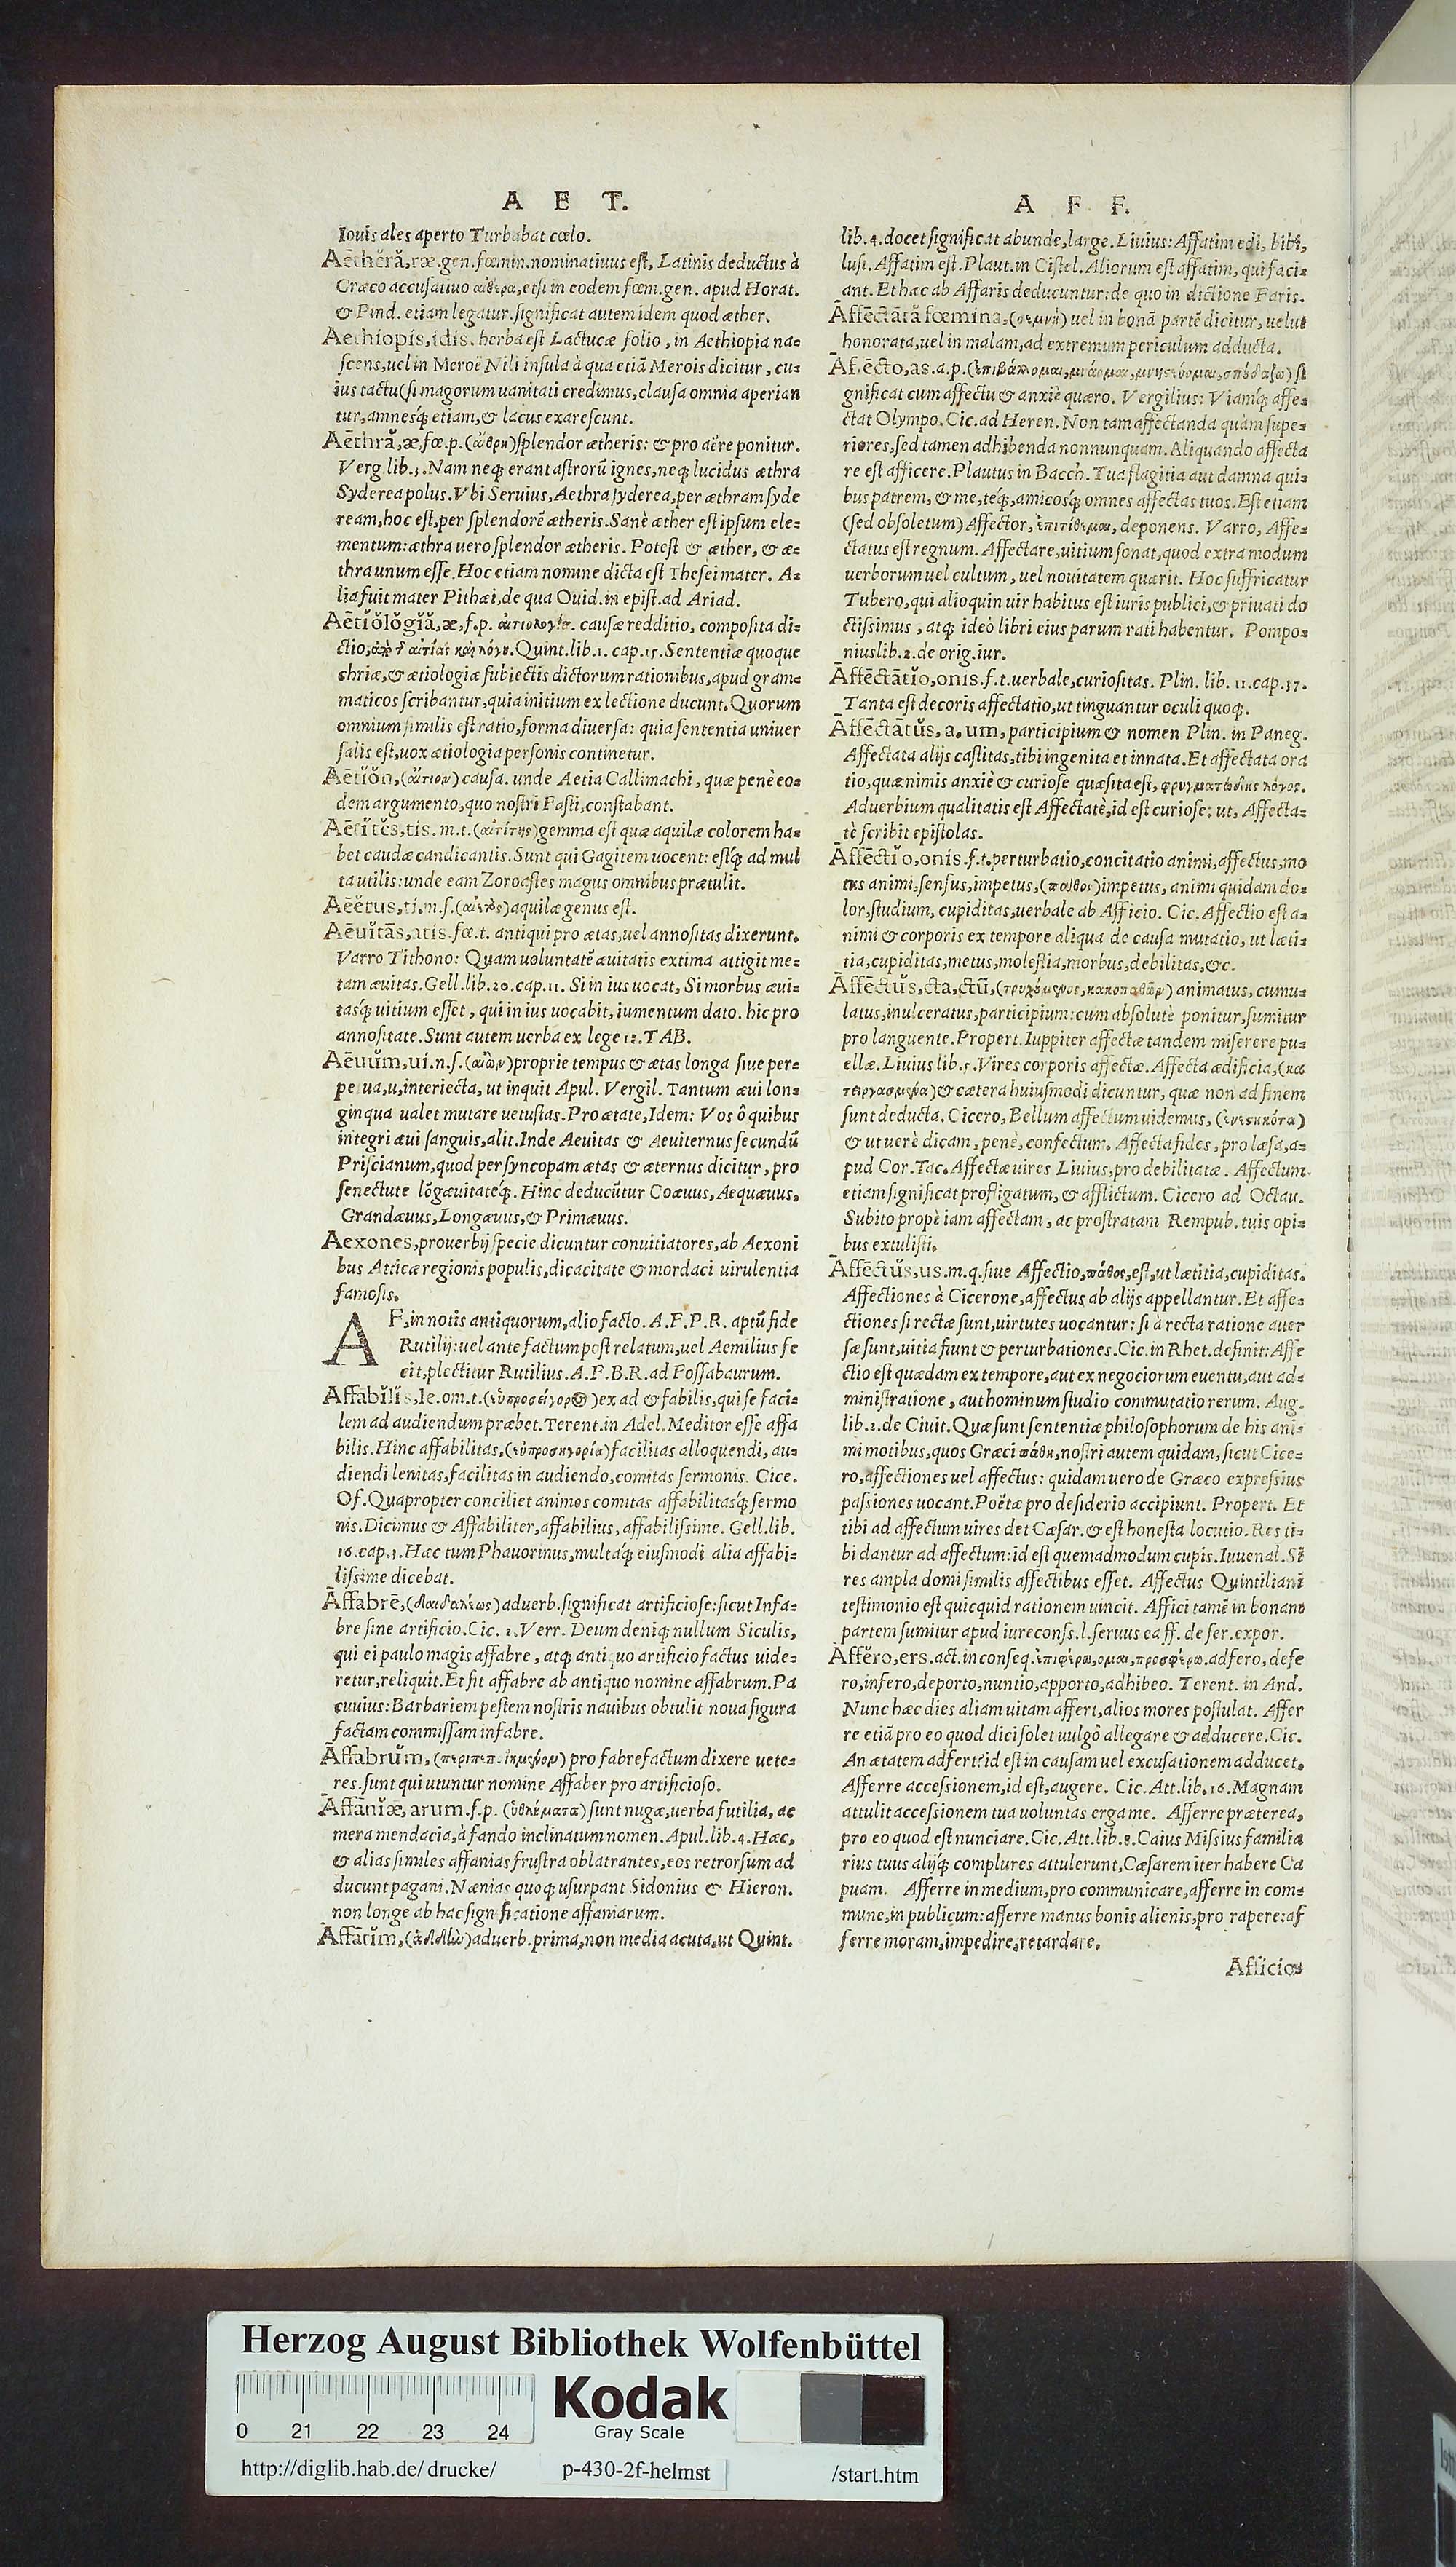 A E T.
Iouis ales aperto Turbabat cœlo.
Aēthĕră, ræ. gen. fœmin. nominatiuus est, Latinis deductus à
Græco accusatiuo αἰθέρα, etsi in eodem fœm. gen. apud Horat.
& Pind. etiam legatur. significat autem idem quod æther.
Aethiopis, idis. herba est Lactucæ folio, in Aethiopia na=
scens, uel in Meroë Nili insula à qua etiã Merois dicitur, cu=
ius tactu (si magorum uanitati credimus, clausa omnia aperian
tur, amnesq́; etiam, & lacus exarescunt.
Aēthră, æ, fœ. p. (αἴθρη) splendor ætheris: & pro aëre ponitur.
Verg. lib. 3. Nam neq; erant astrorũ ignes, neq; lucidus æthra
Syderea polus. Vbi Seruius, Aethra syderea, per æthram syde
ream, hoc est, per splendorẽ ætheris. Sanè æther est ipsum ele=
mentum: æthra uero splendor ætheris. Potest & æther, & æ=
thra unum esse. Hoc etiam nomine dicta est Thesei mater. A=
lia fuit mater Pithæi, de qua Ouid. in epist. ad Ariad.
Aētĭŏlŏgĭă, æ, f. p. αἰτιολογία. causæ redditio, composita di=
ctio, ἀπὸ τ͂ αἰτίας καὶ λόγου. Quint. lib. 1. cap. 15. Sententiæ quoque
chriæ, & ætiologiæ subiectis dictorum rationibus, apud gram=
maticos scribantur, quia initium ex lectione ducunt. Quorum
omnium similis est ratio, forma diuersa: quia sententia uniuer
salis est, uox ætiologia personis continetur.
Aētĭŏn, (αἴτιον) causa. unde Aetia Callimachi, quæ penè eo=
dem argumento, quo nostri Fasti, constabant.
Aētītēs, tis. m. t. (αἰτίτης) gemma est quæ aquilæ colorem ha=
bet caudæ candicantis. Sunt qui Gagitem uocent: estq́; ad mul
ta utilis: unde eam Zoroastes magus omnibus prætulit.
Aëētus, ti. m. s. (αἰετὸς) aquilæ genus est.
Aēuĭtās, atis. fœ. t. antiqui pro ætas, uel annositas dixerunt.
Varro Tithono: Quam uoluntatẽ æuitatis extima attigit me=
tam æuitas. Gell. lib. 20. cap. 11. Si in ius uocat, Si morbus æui=
tasq́; uitium esset, qui in ius uocabit, iumentum dato. hic pro
annositate. Sunt autem uerba ex lege 12. TAB.
Aēuŭm, ui. n. s. (αἰὼν) proprie tempus & ætas longa siue per=
petua, interiecta, ut inquit Apul. Vergil. Tantum æui lon=
ginqua ualet mutare uetustas. Pro ætate, Idem: Vos ô quibus
integri æui sanguis, alit. Inde Aeuitas & Aeuiternus secundũ
Priscianum, quod per syncopam ætas & æternus dicitur, pro
senectute lõgæuitateq́;. Hinc deducũtur Coæuus, Aequæuus,
Grandæuus, Longæuus, & Primæuus.
Aexones, prouerbij specie dicuntur conuitiatores, ab Aexoni
bus Atticæ regionis populis, dicacitate & mordaci uirulentia
famosis.
A F, in notis antiquorum, alio facto. A. F. P. R. aptũ fide
Rutilij: uel ante factum post relatum, uel Aemilius fe
cit, plectitur Rutilius. A. F. B. R. ad Fossabaurum.
Affabĭlis, le. om. t. (εὐπροσήγορος) ex ad & fabilis, qui se faci=
lem ad audiendum præbet. Terent. in Adel. Meditor esse affa
bilis. Hinc affabilitas, (εὐπροσηγορία) facilitas alloquendi, au=
diendi lenitas, facilitas in audiendo, comitas sermonis. Cice.
Of. Quapropter conciliet animos comitas affabilitasq́; sermo
nis. Dicimus & Affabiliter, affabilius, affabilissime. Gell. lib.
16. cap. 3. Hæc tum Phauorinus, multaq́; eiusmodi alia affabi=
lissime dicebat.
Āffabrē, (δαιδαλέως) aduerb. significat artificiose: sicut Infa=
bre sine artificio. Cic. 2. Verr. Deum deniq; nullum Siculis,
qui ei paulo magis affabre, atq; antiquo artificio factus uide=
retur, reliquit. Et fit affabre ab antiquo nomine affabrum. Pa
cuuius: Barbariem pestem nostris nauibus obtulit noua figura
factam commissam infabre.
Āffabrŭm, pro fabrefactum dixere uete=
res. sunt qui utuntur nomine Affaber pro artificioso.
Affānĭæ, arum. f. p. (ὑθλήματα) sunt nugæ, uerba futilia, ac
mera mendacia, à fando inclinatum nomen. Apul. lib. 4. Hæc,
& alias similes affanias frustra oblatrantes, eos retrorsum ad
ducunt pagani. Nænias quoq; usurpant Sidonius & Hieron.
non longe ab hac significatione affaniarum.
Affătim, aduerb. prima, non media acuta, ut Quint.
A F F.
lib. 4. docet significat abunde, large. Liuius: Affatim edi, bibi,
lusi. Affatim est. Plaut. in Cistel. Aliorum est affatim, qui faci=
ant. Et hæc ab Affaris deducuntur: de quo in dictione Faris.
Āffēctātă fœmina, (σεμνὴ) uel in bonã partẽ dicitur, uelut
honorata, uel in malam, ad extremum periculum adducta.
Affēcto, as. a. p. si
gnificat cum affectu & anxiè quæro. Vergilius: Viamq́; affe=
ctat Olympo. Cic. ad Heren. Non tam affectanda quàm supe=
riores, sed tamen adhibenda nonnunquam. Aliquando affecta
re est afficere. Plautus in Bacch. Tua flagitia aut damna qui=
bus patrem, & me, teq́;, amicosq́; omnes affectas tuos. Est etiam
(sed obsoletum) Affector, ἐπιτίθεμαι, deponens. Varro, Affe=
ctatus est regnum. Affectare, uitium sonat, quod extra modum
uerborum uel cultum, uel nouitatem quærit. Hoc suffricatur
Tubero, qui alioquin uir habitus est iuris publici, & priuati do
ctissimus, atq; ideò libri eius parum rati habentur. Pompo=
nius lib. 2. de orig. iur.
Āffēctātĭo, onis. f. t. uerbale, curiositas. Plin. lib. 11. cap. 37.
Tanta est decoris affectatio, ut tinguantur oculi quoq;.
Āffēctātŭs, a, um, participium & nomen Plin. in Paneg.
Affectata alijs castitas, tibi ingenita et innata. Et affectata ora
tio, quæ nimis anxiè & curiose quæsita est, φρυγματώδης λόγος.
Aduerbium qualitatis est Affectatè, id est curiose: ut, Affecta=
tè scribit epistolas.
Āffēctĭo, onis. f. t. perturbatio, concitatio animi, affectus, mo
tus animi, sensus, impetus, (παθος) impetus, animi quidam do=
lor, studium, cupiditas, uerbale ab Afficio. Cic. Affectio est a=
nimi & corporis ex tempore aliqua de causa mutatio, ut læti=
tia, cupiditas, metus, molestia, morbus, debilitas, &c.
Āffēctŭs, cta, ctũ, animatus, cumu=
latus, inulceratus, participium: cum absolutè ponitur, sumitur
pro languente. Propert. Iuppiter affectæ tandem miserere pu=
ellæ. Liuius lib. 5. Vires corporis affectæ. Affecta ædificia, (κα
τειργασμένα) & cætera huiusmodi dicuntur, quæ non ad finem
sunt deducta. Cicero, Bellum affectum uidemus,
& ut uerè dicam, penè, confectum. Affecta fides, pro læsa, a=
pud Cor. Tac. Affectæ uires Liuius, pro debilitatæ. Affectum
etiam significat profligatum, & afflictum. Cicero ad Octau.
Subito propè iam affectam, ac prostratam Rempub. tuis opi=
bus extulisti.
Āffēctŭs, us. m. q. siue Affectio, πάθος, est, ut lætitia, cupiditas.
Affectiones à Cicerone, affectus ab alijs appellantur. Et affe=
ctiones si rectæ sunt, uirtutes uocantur: si à recta ratione auer
sæ sunt, uitia fiunt & perturbationes. Cic. in Rhet. definit: Affe
ctio est quædam ex tempore, aut ex negociorum euentu, aut ad=
ministratione, aut hominum studio commutatio rerum. Aug.
lib. 2. de Ciuit. Quæ sunt sententiæ philosophorum de his ani=
mi motibus, quos Græci πάθη, nostri autem quidam, sicut Cice=
ro, affectiones uel affectus: quidam uero de Græco expressius
passiones uocant. Poëtæ pro desiderio accipiunt. Propert. Et
tibi ad affectum uires det Cæsar. & est honesta locutio. Res ti=
bi dantur ad affectum: id est quemadmodum cupis. Iuuenal. Si
res ampla domi similis affectibus esset. Affectus Quintiliani
testimonio est quicquid rationem uincit. Affici tamẽ in bonam
partem sumitur apud iureconss. l. seruus ea ff. de ser. expor.
Āffĕro, ers. act. inconseq. ἐπιφέρω, ομαι, προσφέρω. adfero, defe
ro, infero, deporto, nuntio, apporto, adhibeo. Terent. in And.
Nunc hæc dies aliam uitam affert, alios mores postulat. Affer
re etiã pro eo quod dici solet uulgò allegare & adducere. Cic.
An ætatem adfert? id est in causam uel excusationem adducet.
Afferre accessionem, id est, augere. Cic. Att. lib. 16. Magnam
attulit accessionem tua uoluntas erga me. Afferre præterea,
pro eo quod est nunciare. Cic. Att. lib. 8. Caius Missius familia
rius tuus alijq́; complures attulerunt, Cæsarem iter habere Ca
puam. Afferre in medium, pro communicare, afferre in com=
mune, in publicum: afferre manus bonis alienis, pro rapere: af
ferre moram, impedire, retardare.
Afficio
Herzog August Bibliothek Wolfenbüttel
0 21 22 23 24
Kodak
Gray Scale
http://diglib.hab.de/drucke/ p-430-2f-helmst /start.htm